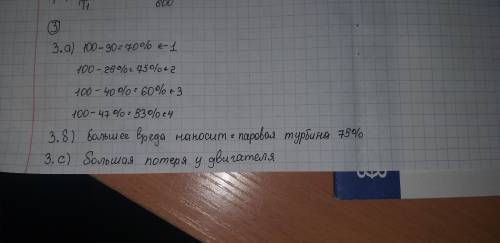 T₁ 600
③
3.a) 100-30=70% ←1
100-25%=75%←2
100-40%=60%←3
100-47%=53%←4
3.б) большее вреда наносит = паровая турбина 75%
3.c) большая потеря у двигателя